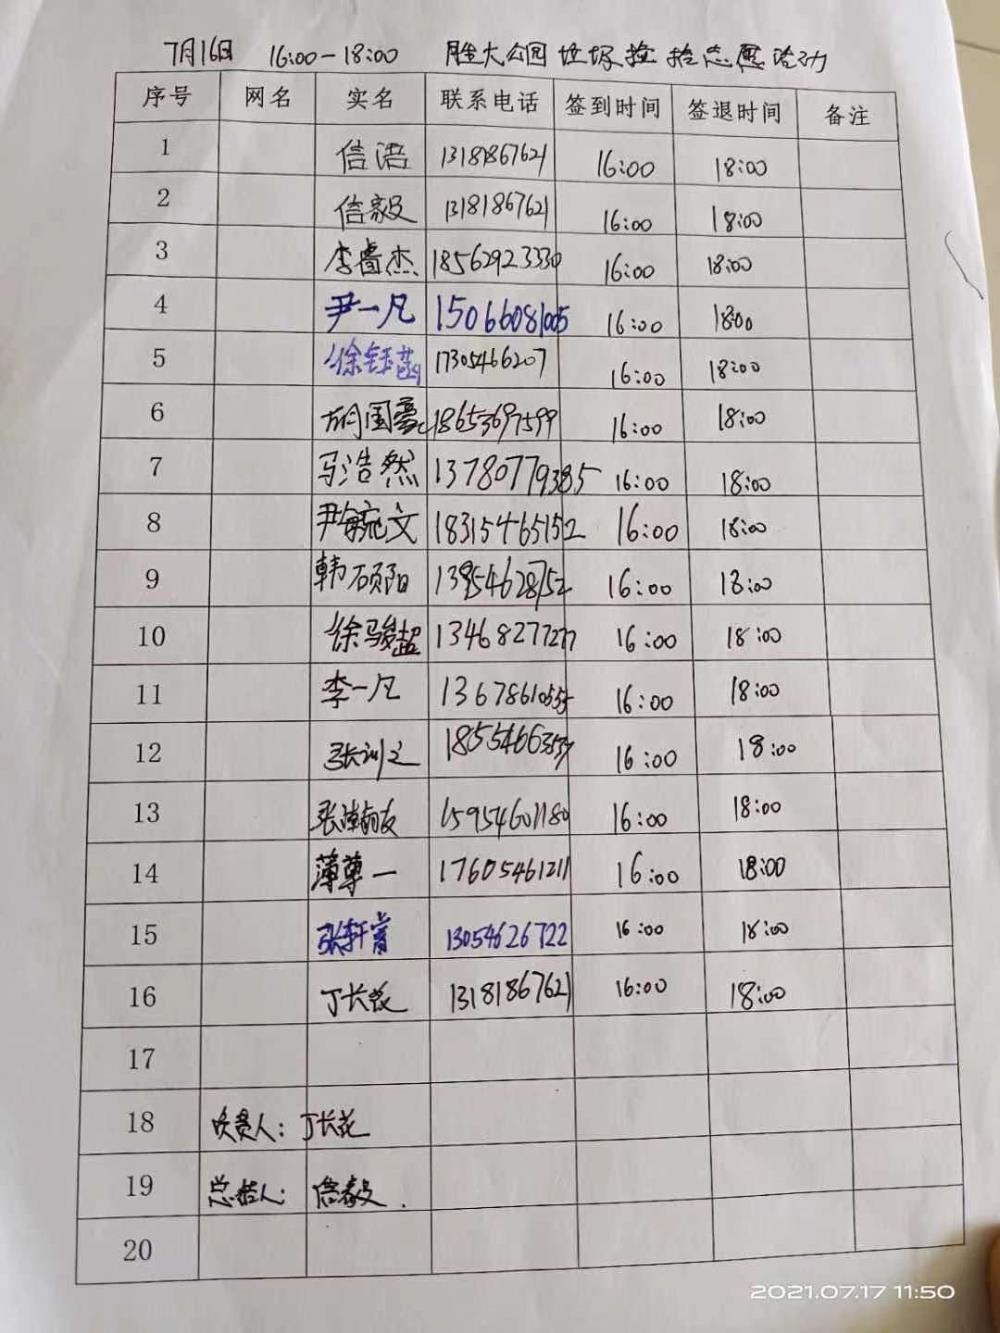 7月16日 16:00-18:00 胜大公园垃圾捡拾志愿活动
序号 网名 实名 联系电话 签到时间 签退时间 备注
1 信浯 13181867621 16:00 18:00
2 信毅 13181867621 16:00 18:00
3 李睿杰 18562923330 16:00 18:00
4 尹一凡 15066081005 16:00 18:00
5 徐钰菡 17305466207 16:00 18:00
6 胡国豪 18653697599 16:00 18:00
7 马浩然 13780779385 16:00 18:00
8 尹毓文 18315465152 16:00 18:00
9 韩硕阳 13954628752 16:00 18:00
10 徐骏超 13468277277 16:00 18:00
11 李一凡 13678610555 16:00 18:00
12 张训之 16:00 18:00
13 张瀚友 15954601180 16:00 18:00
14 薄尊一 17605461211 16:00 18:00
15 张轩 13054626722 16:00 18:00
16 丁长花 13181867621 16:00 18:00
17
18 负责人: 丁长花
19 总结人: 信毅.
20
2021.07.17 11:50